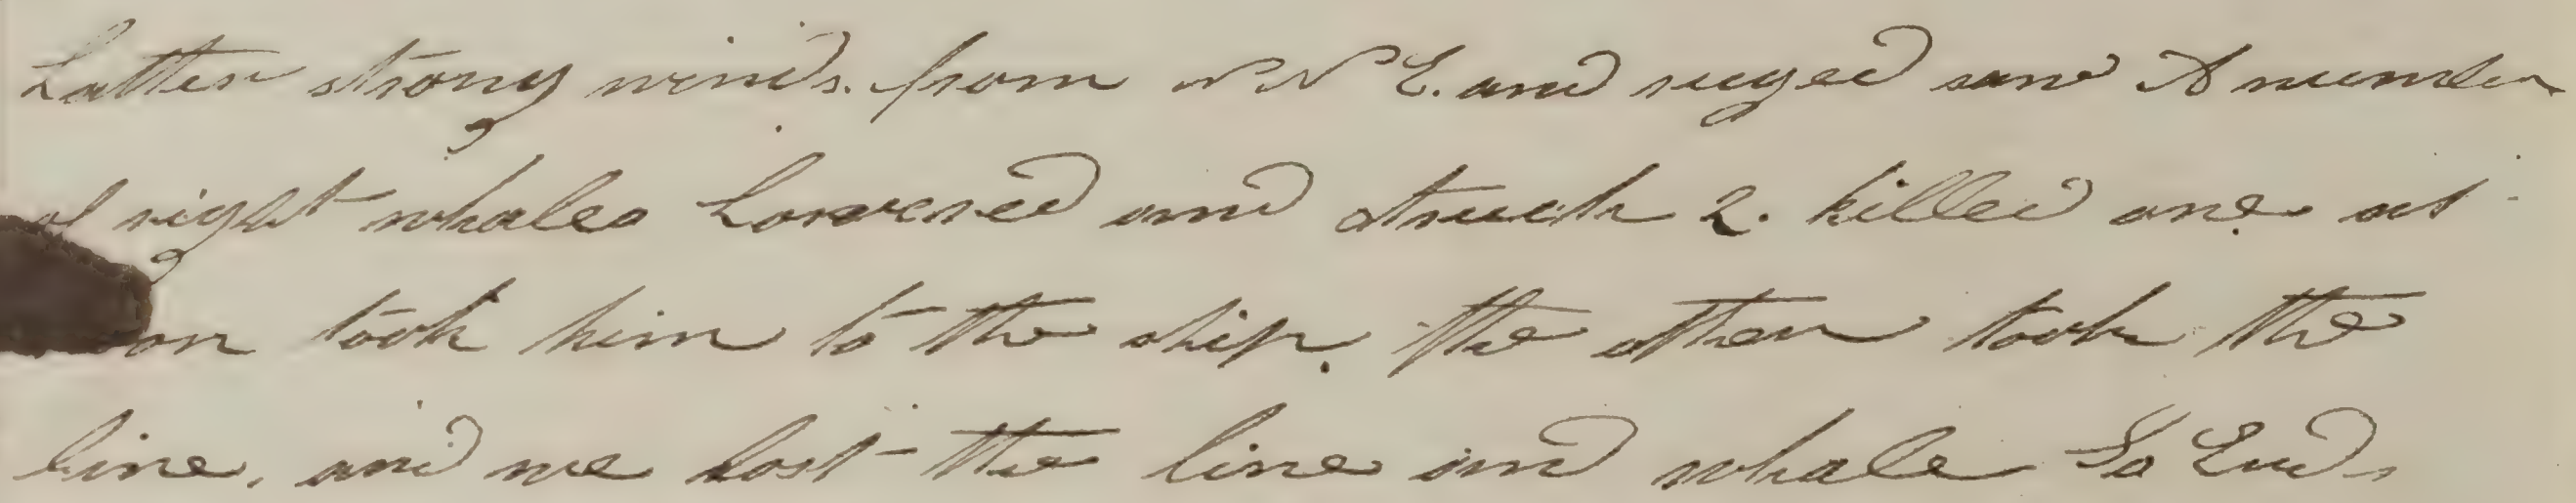 Latter strong winds. from N N E. and ruged saw A number
of right whales Lowered and struck 2. killed one at
took him to the ship. the other took the
line, and we lost the line and whale So Ends